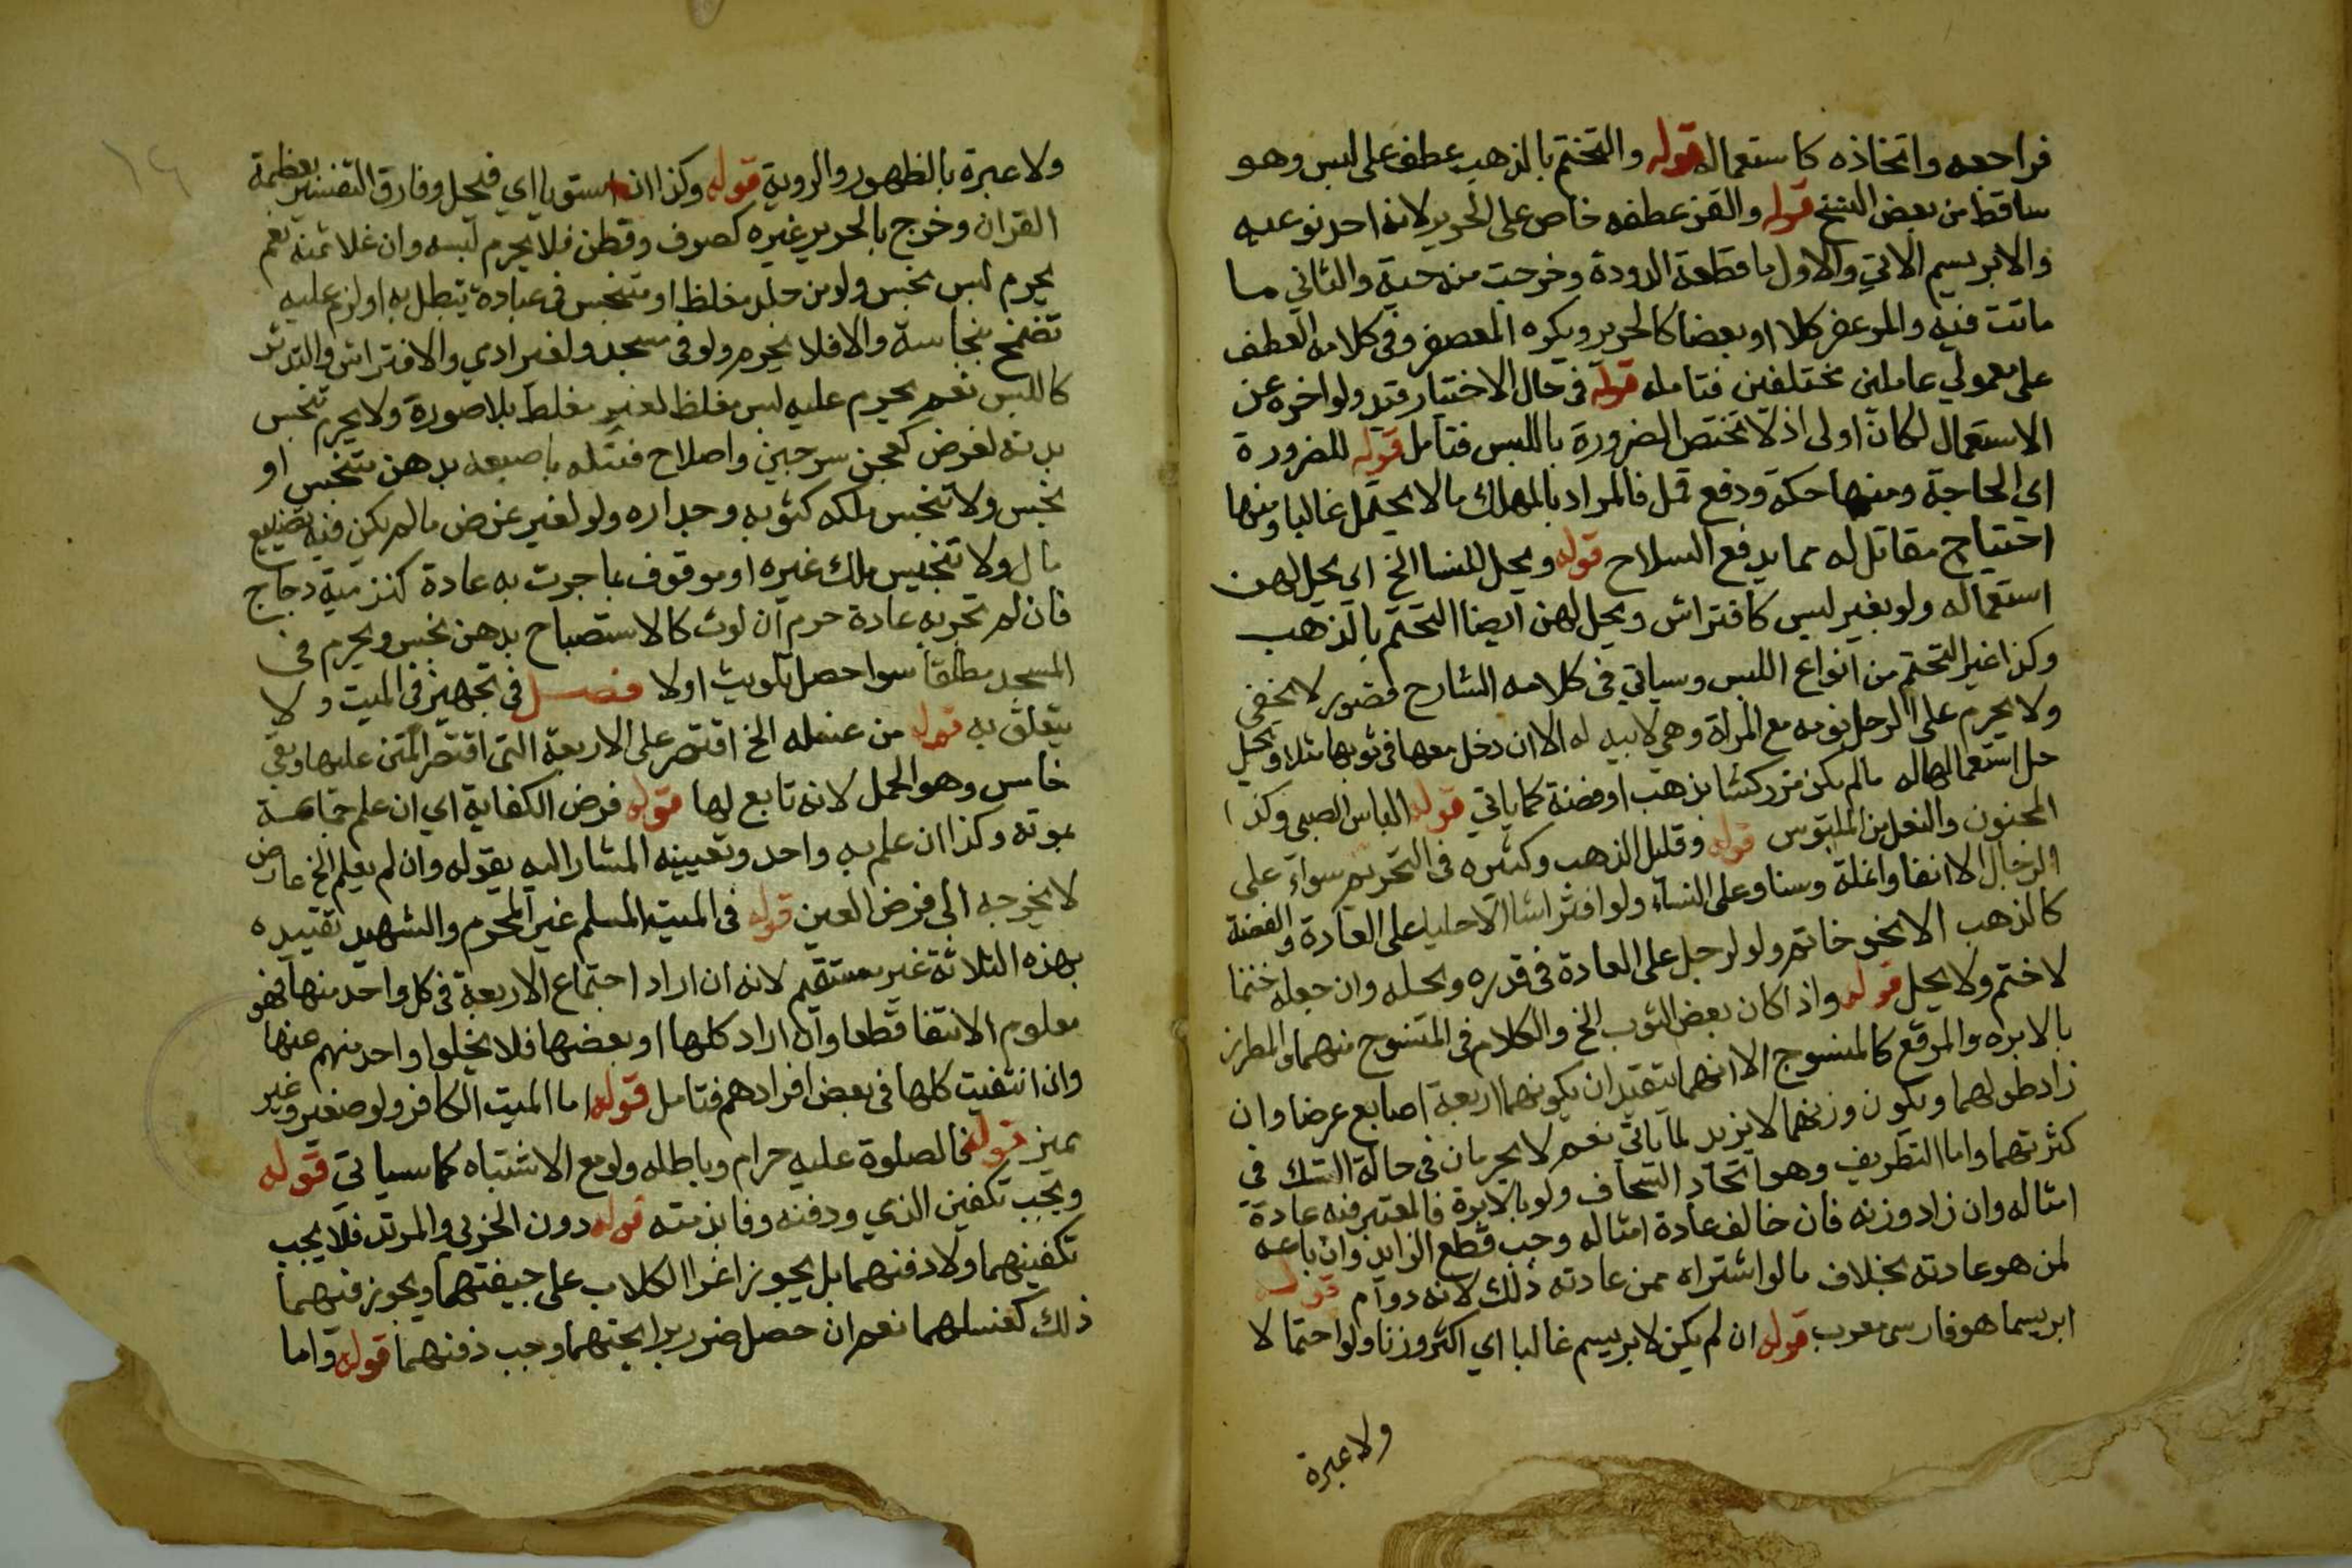 فراجعه واتخاذه كاستعماله قوله والتختم بالذهب عطف على لبس وهو
ساقط من بعض النسخ قوله والقز عطفه خاص على الحرير لانه احد نوعيه
والابريسم الاتي والاول ما قطعته الدودة وخرجت منه حية والثاني ما
ماتت فيه والمزعفر كلا او بعضا كالحرير ويكره المعصفر وفي كلامه العطف
على معمولي عاملين مختلفين فتامله قوله في حال الاختيار قيد ولو اخره عن
الاستعمال لكان اولى اذ لا تختص الضرورة باللبس فتامل قوله للضرورة
اي الحاجة ومنها حكة ودفع قمل فالمراد بالمهلك ما لا يحتمل غالبا ومنها
احتياج مقاتل له مما يدفع السلاح قوله ويحل للنسا الخ اي يحل لهن
استعماله ولو بغير لبس كافتراش ويحل لهن ايضا التختم بالذهب
وكذا غير التختم من انواع اللبس وسياتي في كلامه الشارح قصور لا يخفى
ولا يحرم على الرجل نومه مع المراة وهي لابسه له الا ان دخل معها في ثوبها مثلا ويحل
حل استعمالها له مالم يكن مزركشا بذهب او فضة كما ياتي قوله الباس الصبي وكذا
المجنون والنعل من الملبوس قوله وقليل الذهب وكثيره في التحريم سواء على
الرجال الا انفا وانملة وسنا وعلى النساء ولو افتراشا الا حليا على العادة والفضة
كالذهب الا نحو خاتم ولو لرجل على العادة في قدره ومحله وان جعله ختما
لا ختم ولا يحل قوله واذا كان بعض الثوب الخ والكلام في المنسوج منهما والمطرز
بالابره والمرقع كالمنسوج الا انهما يتقيد ان بكونهما اربعة اصابع عرضا وان
زاد طولهما وبكون وزنهما لا يزيد لما ياتي نعم لا يحرمان في حالة الشك في
كثرتهما واما التطريف وهو اتخاذ السجاف ولو بالابرة فالمعتبر فيه عادة
امثاله وان زاد وزنه فان خالف عادة امثاله وجب قطع الزايد وان باعه
لمن هو عادته بخلاف ما لو اشتراه ممن عادته ذلك لانه دوام قوله
ابريسما هو فارسى معرب قوله ان لم يكن الابريسم غالبا اي اكثر وزنا ولو احتمالا
ولا عبرة
ولا عبرة بالظهور والروية قوله وكذا ان استويا اي فيحل وفارق التفسير بعظمة
القران وخرج بالحرير غيره كصوف وقطن فلا يحرم لبسه وان غلا ثمنه نعم
يحرم لبس نجس ولو من جلد مغلظ او متنجس في عبادة تبطل به او لزم عليه
تضمخ بنجاسة والا فلا يحرم ولو في مسجد ولغير ادمي والافتراش والتدثر
كاللبس نعم يحرم عليه لبس مغلظ لغير مغلظ بلا صورة ولا يحرم تنجس
بدنه لغرض كعجن سرجين واصلاح فتيله باصبعه بدهن متنجس او
نجس ولا تنجس ملكه كثوبه وجداره ولو لغير غرض مالم يكن فيه تضييع
مال ولا تنجيس ملك غيره او موقوف بما جرت به عادة كنز مية دجاج
فان لم تجر به عادة حرم ان لوث كالاستصباح بدهن نجس ويحرم في
المسجد مطلقا سوا حصل تلويث اولا فصل في تجهيز في الميت ولا
يتعلق به قوله من غسله الخ اقتصر على الاربعة التي اقتصر المتن عليها وبقي
خامس وهو الحمل لانه تابع لها قوله فرض الكفاية اي ان علم جماعة
بموته وكذا ان علم به واحد وتعيينه المشار اليه بقوله وان لم يعلم الخ عارض
لا يخرجه الى فرض العين قوله في الميت المسلم غير المحرم والشهيد تقييده
بهذه الثلاثة غير مستقيم لانه ان اراد اجتماع الاربعة في كل واحد منها فهو
معلوم الانتفا قطعا وان اراد كلها او بعضها فلا يخلوا واحد منهم عنها
وان انتفيت كلها في بعض افرادهم فتامل قوله اما الميت الكافر ولو صغير وغير
مميز قوله فالصلوة عليه حرام وباطله ولو مع الاشتباه كما سياتي قوله
ويجب تكفين الذمي ودفنه وفا بذمته قوله دون الحربي والمرتد فلا يجب
تكفينهما ولا دفنهما بل يجوز اغرا الكلاب على جيفتهما ويجوز فيهما
ذلك كغسلهما نعم ان حصل ضرر برايحتهما وجب دفنهما قوله واما